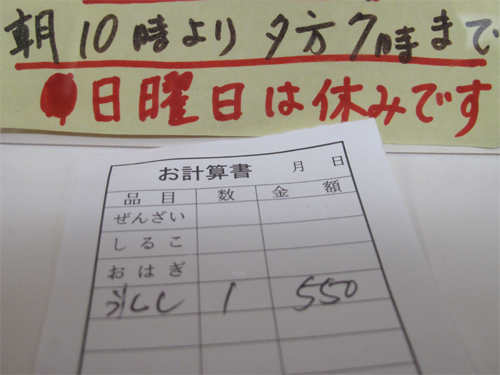 朝10時より夕方7時まで
●日曜日は休みです
お計算書 月 日
品目 数 金額
ぜんざい
しるこ
おはぎ
1 550